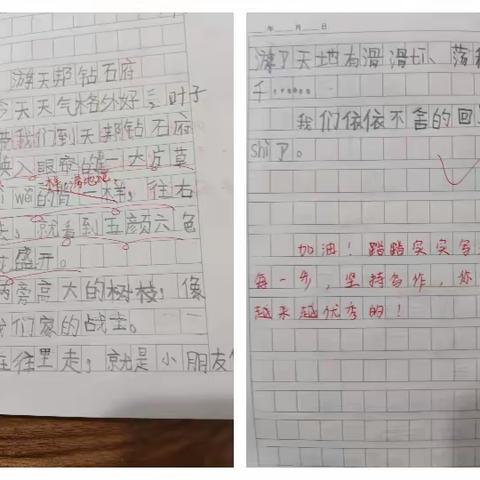 游天邦钻石府
今天天气格外好,叶子
带我们到天邦钻石府
入眼帘的是一大片草
像
往右
就看到五颜六色
盛开。
两旁高大的树枝,像
我们家的战士。
往里走,就是小朋友
年 月 日
游了天地有滑滑梯、荡秋
千......
我们依依不舍的回
shì了。
加油!踏踏实实写
每一步,坚持写作,你
越来越优秀的!